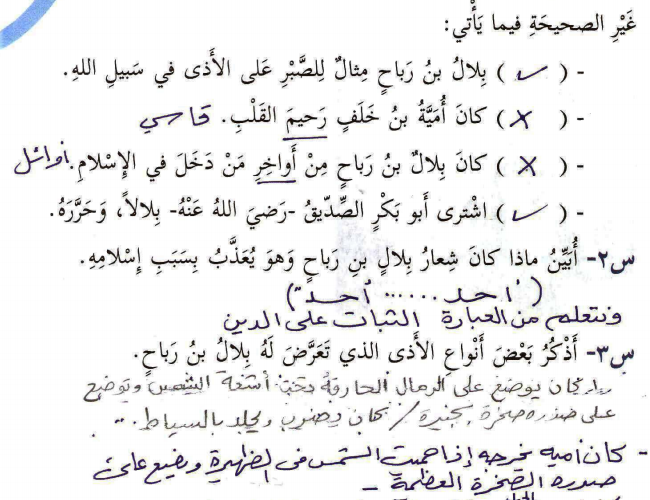 غَيْرِ الصحيحَةِ فيما يَأْتي:
- ( ✓ ) بِلالُ بنُ رَباحٍ مِثالٌ لِلصَّبْرِ عَلى الأَذى في سَبيلِ اللهِ.
- ( ✗ ) كانَ أُمَيَّةُ بنُ خَلَفٍ رَحيمَ القَلْبِ. قاسي
- ( ✗ ) كانَ بِلالُ بنُ رَباحٍ مِنْ أَواخِرِ مَنْ دَخَلَ في الإِسْلامِ. أوائل
- ( ✓ ) اشْترى أَبو بَكْرٍ الصِّدّيقُ -رَضيَ اللهُ عَنْهُ- بِلالاً، وَحَرَّرَهُ.
س٢- أُبَيِّنُ ماذا كانَ شِعارُ بِلالِ بنِ رَباحٍ وَهوَ يُعَذَّبُ بِسَبَبِ إِسْلامِهِ.
("أحد ...... أحد")
ونتعلم من العبارة الثبات على الدين
س٣- أَذْكُرُ بَعْضَ أَنْواعِ الأَذى الذي تَعَرَّضَ لَهُ بِلالُ بنُ رَباحٍ.
كان يوضع على الرمال الحارقة تحت أشعة الشمس وتوضع
على صدره صخرة كبيرة / كان يضرب ويجلد بالسياط...
- كان أميه يخرجه إذا حميت الشمس في الظهيرة ويضع على
صدره الصخرة العظمة -